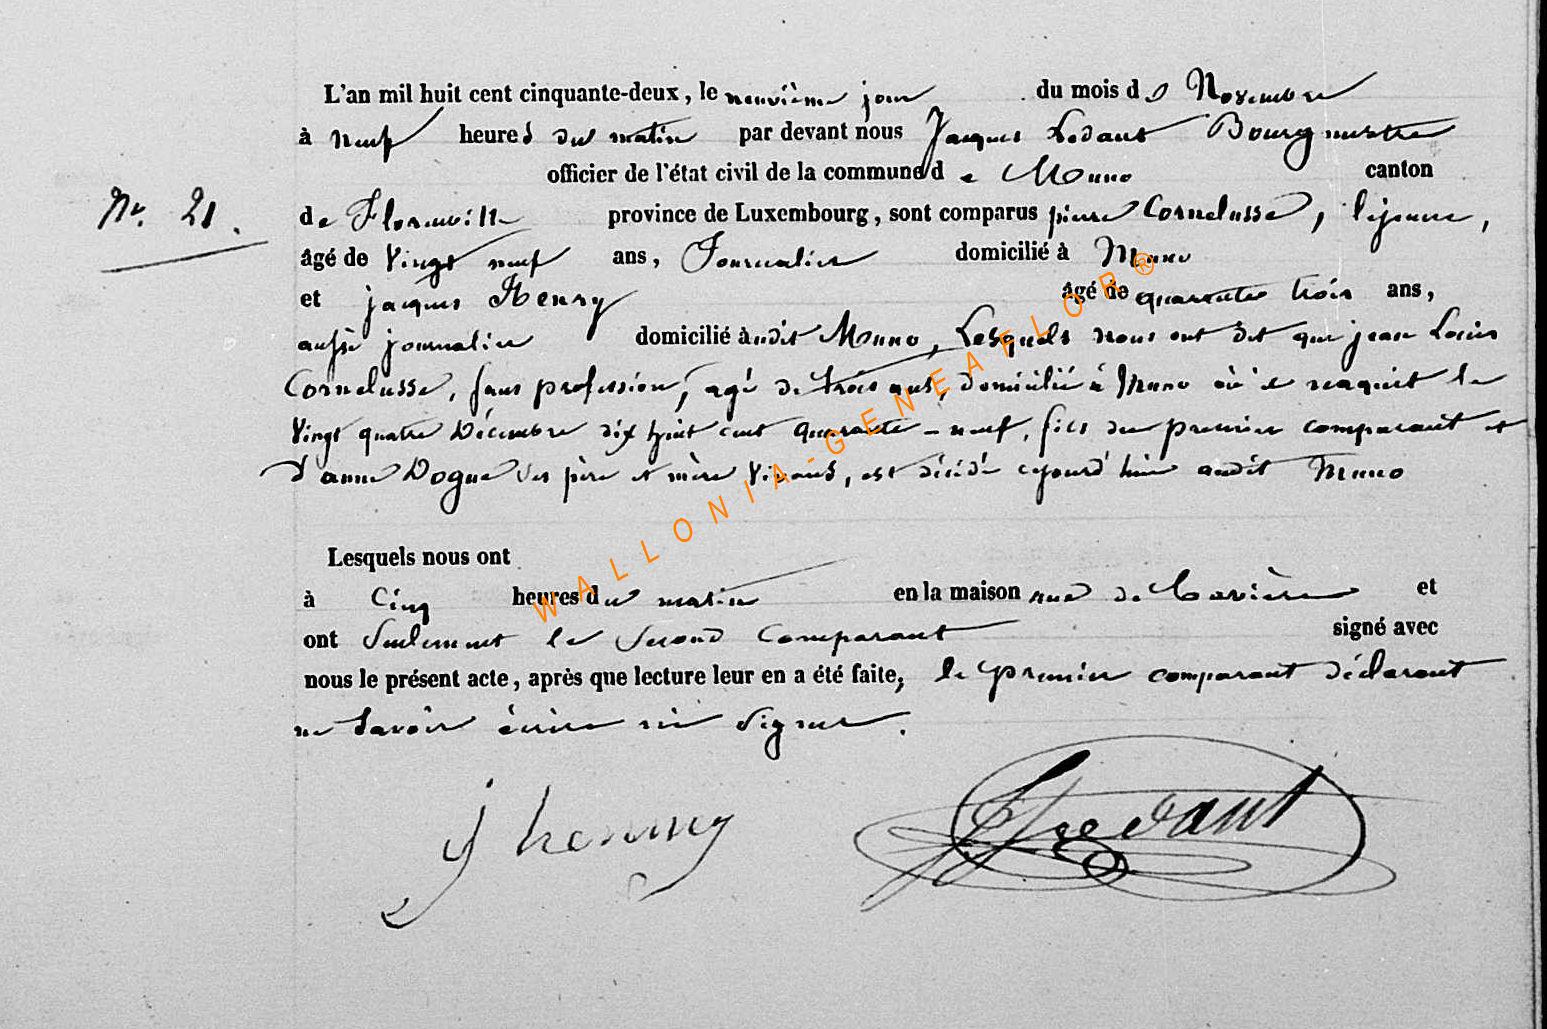 L'an mil huit cent cinquante-deux, le neuvième jour du mois de Novembre
à neuf heures du matin par devant nous Jacques Ledant Bourgmestre
officier de l'état civil de la commune d e Muno canton
N°. 21.
de Florenville province de Luxembourg, sont comparus pierre Cornelusse, lejeune,
âgé de Vingt neuf ans, Journalier domicilié à Muno
et jacques Henry âgé de quarante trois ans,
aussi journalier domicilié àudit Muno, Lesquels nous ont dit que jean Louis
Cornelusse, sans profession, agé de trois ans, domicilié à Muno où il naquit le
Vingt quatre Décembre dix huit cent quarante-neuf, fils du premier comparant et
d'anne Dogue ses père et mère Vivans, est décédé cejourd'hui audit Muno
Lesquels nous ont
à Cinq heures du matin en la maison rue de et
ont Seulement le Second Comparant signé avec
nous le présent acte, après que lecture leur en a été faite, le premier comparant déclarant
ne Savoir écrire ni Signer.
j henry Ledant
WALLONIA-GENEAFLOR®